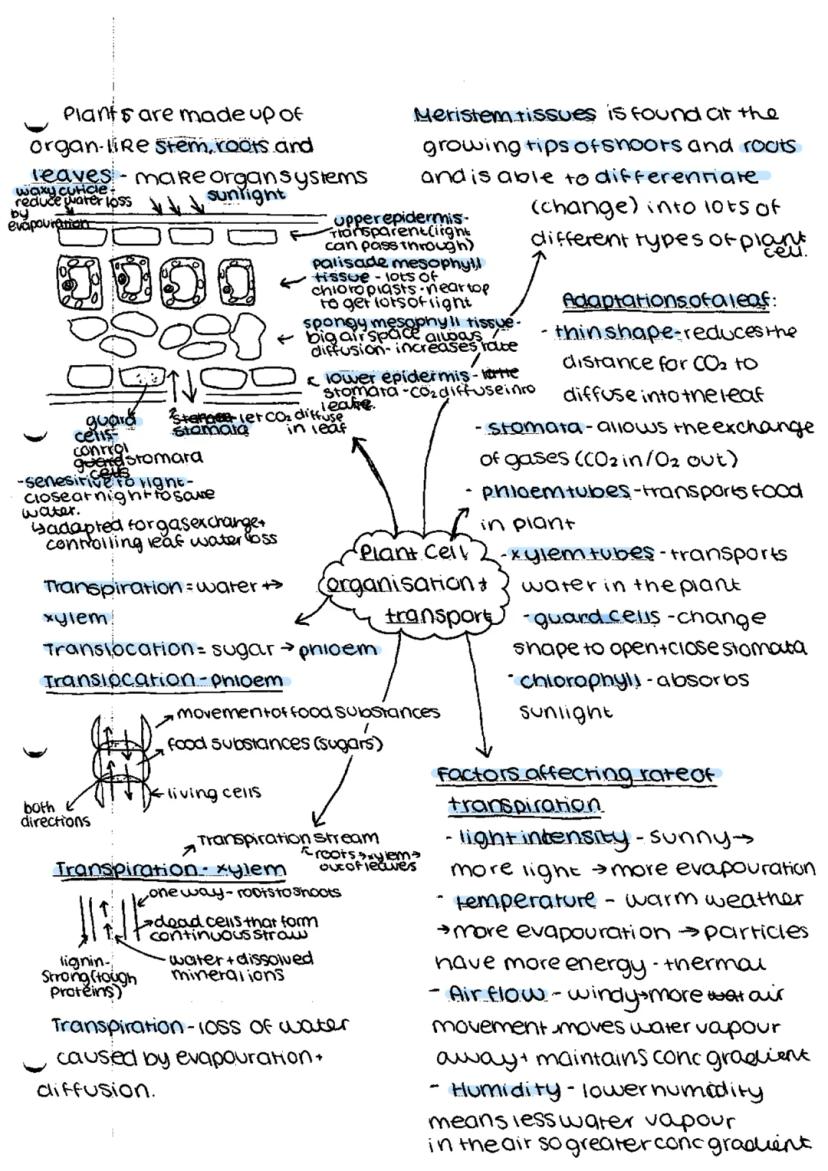 Plants are made up of
organ-like stem, roots and
leaves - make organ systems
waxy cuticle-
reduce water loss
by
evapouration
sunlight
upper epidermis-
transparent (light
can pass through)
palisade mesophyll
tissue - lots of
chloroplasts - near top
to get lots of light
spongy mesophyll tissue-
big air space allows
diffusion - increases rate
lower epidermis -
stomata - CO2 diffuse into
leafe.
guard
cells-
control
guard stomata
cells
stomata let CO2 diffuse
in leaf
- senesirive to light -
close at night to save
water.
↳ adapted for gas exchange +
controlling leaf water loss
Meristem tissues is found at the
growing tips of shoots and roots
and is able to differentiate
(change) into lots of
different types of plant
cell.
Adaptations of a leaf:
- thin shape - reduces the
distance for CO2 to
diffuse into the leaf
- stomata - allows the exchange
of gases (CO2 in/O2 out)
- phloem tubes - transports food
in plant
- xylem tubes - transports
water in the plant
- guard cells - change
shape to open + close stomata
- chlorophyll - absorbs
sunlight
Plant Cell
organisation +
transport
Transpiration = water →
xylem
Translocation = sugar → phloem
Translocation - phloem
movement of food substances
food substances (sugars)
living cells
both
directions
Transpiration stream
roots → xylem →
out of leaves
Transpiration - xylem
one way - roots to shoots
dead cells that form
continuous straw
water + dissolved
mineral ions
lignin-
strong (tough
proteins)
Transpiration - loss of water
caused by evapouration +
diffusion.
Factors affecting rate of
transpiration
- light intensity - sunny →
more light → more evapouration
- temperature - warm weather
→ more evapouration → particles
have more energy - thermal
- Air flow - windy → more air
movement moves water vapour
away + maintains conc gradient
- Humidity - lower humidity
means less water vapour
in the air so greater conc gradient